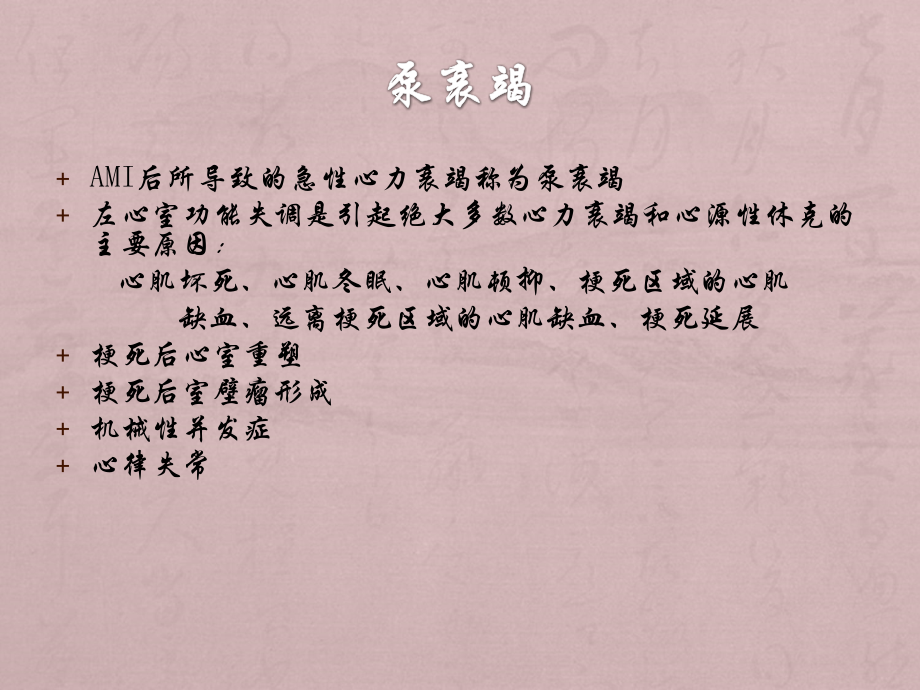 泵衰竭
+ AMI后所导致的急性心力衰竭称为泵衰竭
+ 左心室功能失调是引起绝大多数心力衰竭和心源性休克的
主要原因：
心肌坏死、心肌冬眠、心肌顿抑、梗死区域的心肌
缺血、远离梗死区域的心肌缺血、梗死延展
+ 梗死后心室重塑
+ 梗死后室壁瘤形成
+ 机械性并发症
+ 心律失常